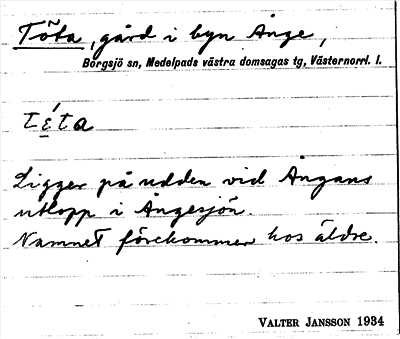 Töta, gård i byn Ånge,
Borgsjö sn, Medelpads västra domsagas tg, Västernorrl. l.
téta
Ligger på udden vid Ångans
utlopp i Ångesjön.
Namnet förekommer hos äldre.
VALTER JANSSON 1934